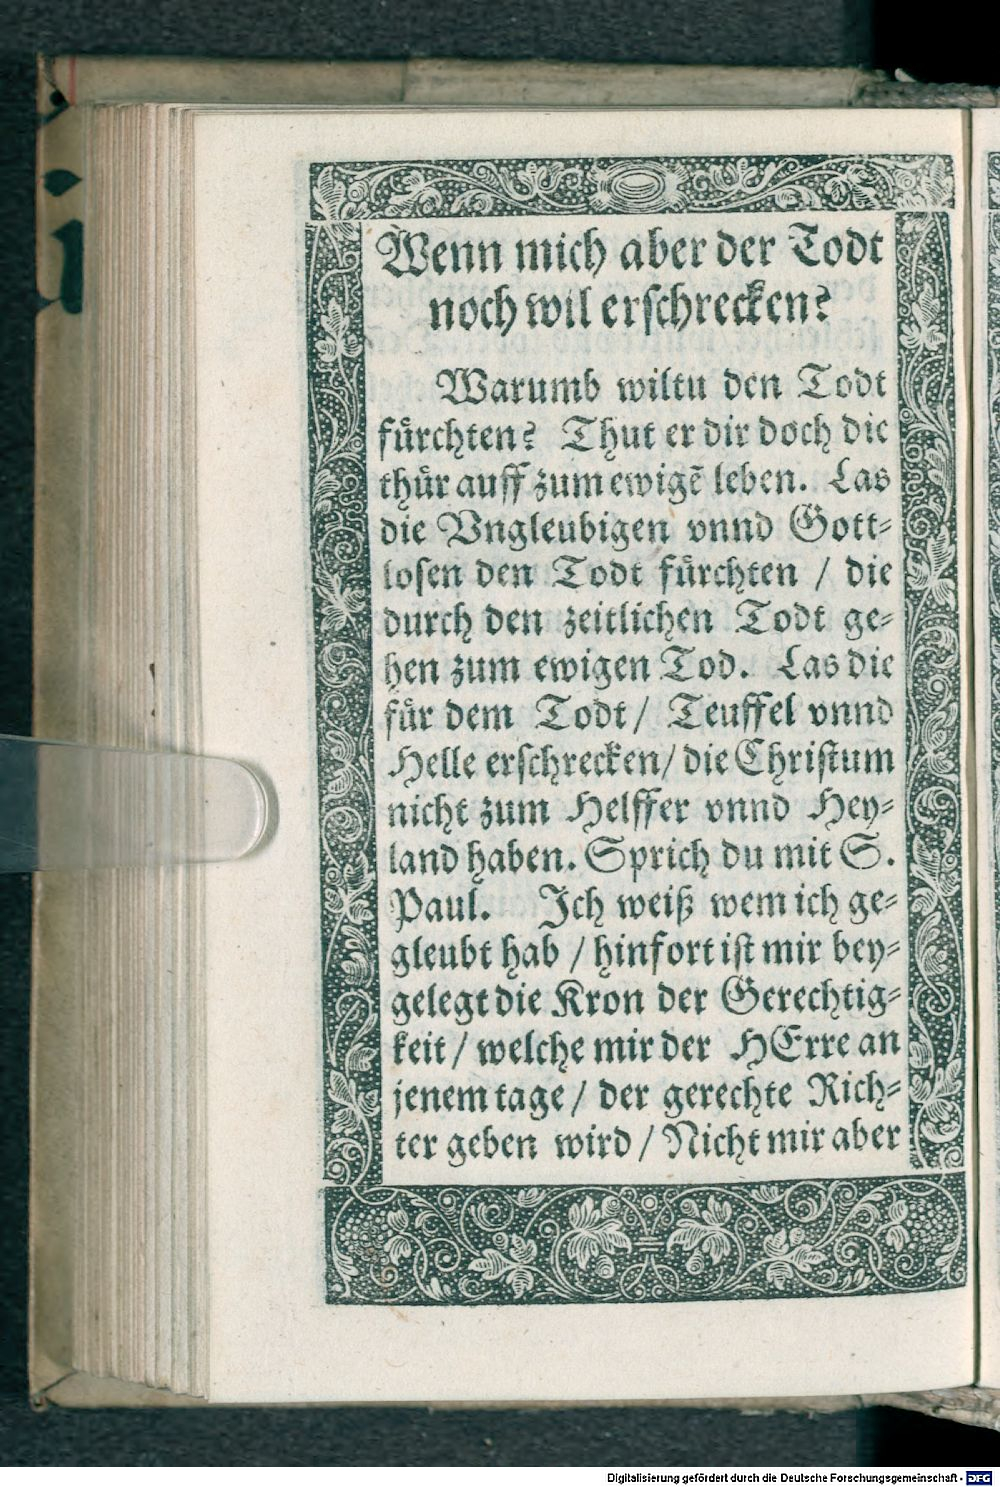 Wenn mich aber der Todt
noch wil erschrecken?
Warumb wiltu den Todt
fuͤrchten? Thut er dir doch die
thuͤr auff zum ewigẽ leben. Las
die Vngleubigen vnnd Gott-
losen den Todt fuͤrchten / die
durch den zeitlichen Todt ge-
hen zum ewigen Tod. Las die
fuͤr dem Todt / Teuffel vnnd
Helle erschrecken / die Christum
nicht zum Helffer vnnd Hey-
land haben. Sprich du mit S.
Paul. Ich weiß wem ich ge-
gleubt hab / hinfort ist mir bey-
gelegt die Kron der Gerechtig-
keit / welche mir der HErre an
jenem tage / der gerechte Rich-
ter geben wird / Nicht mir aber
Digitalisierung gefördert durch die Deutsche Forschungsgemeinschaft - DFG